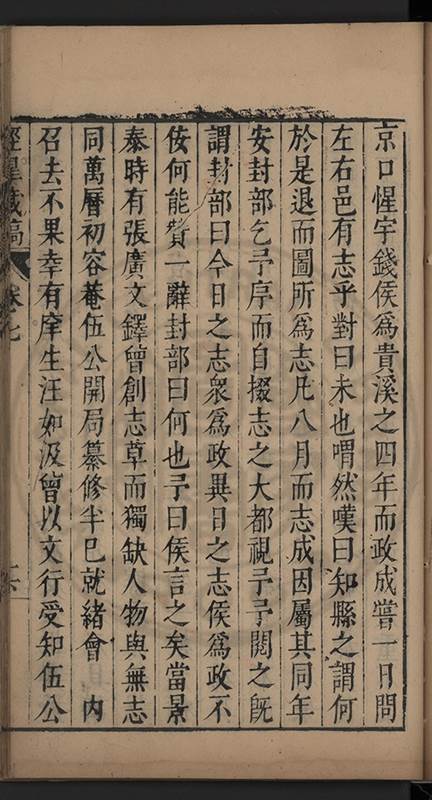 京口惺宇錢侯為貴溪之四年而政成嘗一日問
左右邑有志乎對曰未也喟然嘆曰知縣之謂何
於是退而圖所為志凡八月而志成因屬其同年
安封部乞予序而自掇志之大都視予予閱之既
謂封部曰今日之志衆為政異日之志侯為政不
佞何能贊一辭封部曰何也予曰侯言之矣當景
泰時有張廣文鐸曾創志草而獨缺人物與無志
同萬曆初容菴伍公開局纂修半巳就緒會 內
召去不果幸有庠生汪如汲曾以文行受知伍公
藏稿 卷七